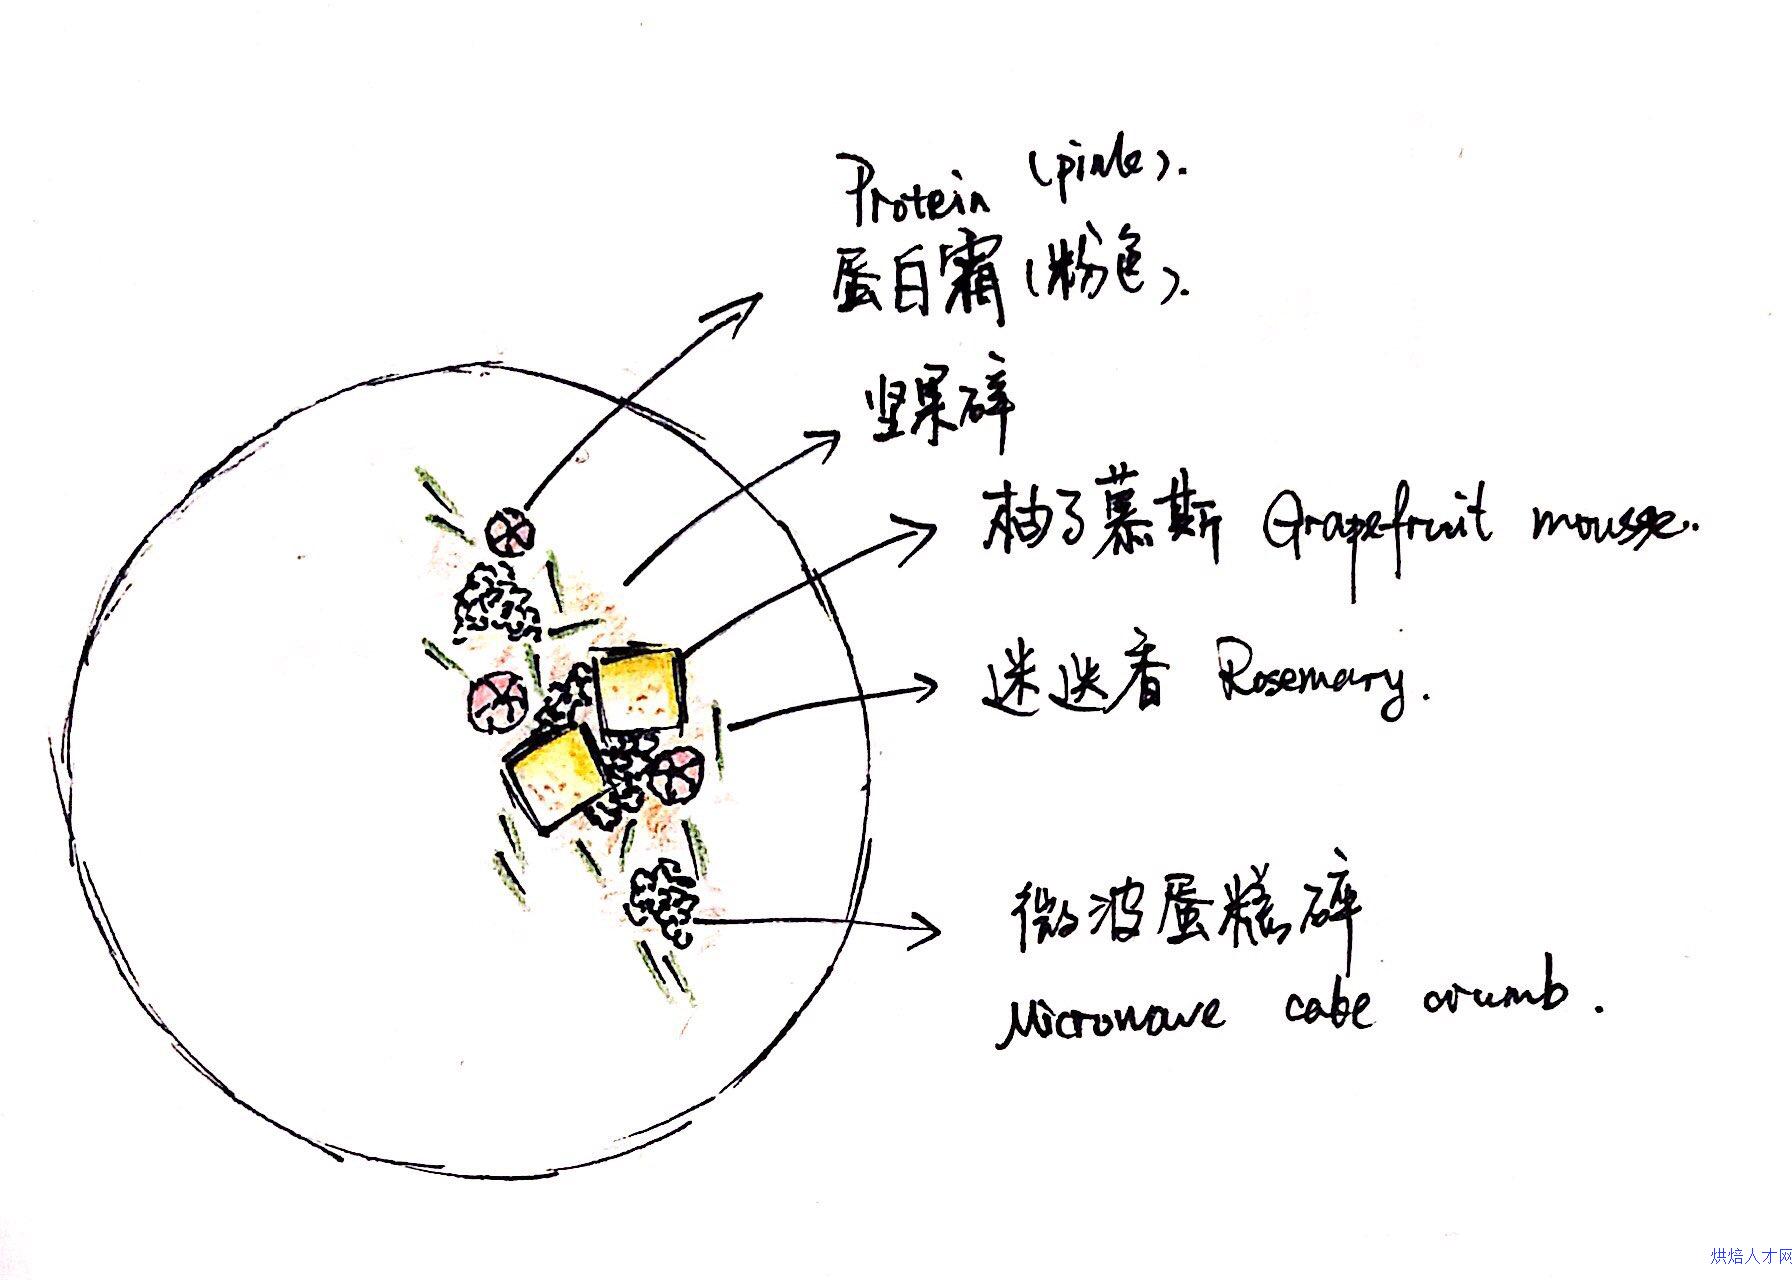 Protein (pink).
蛋白霜(粉色).
坚果碎
柚子慕斯 Grapefruit mousse.
迷迭香 Rosemary.
微波蛋糕碎
Microwave cake crumb.
烘焙人才网